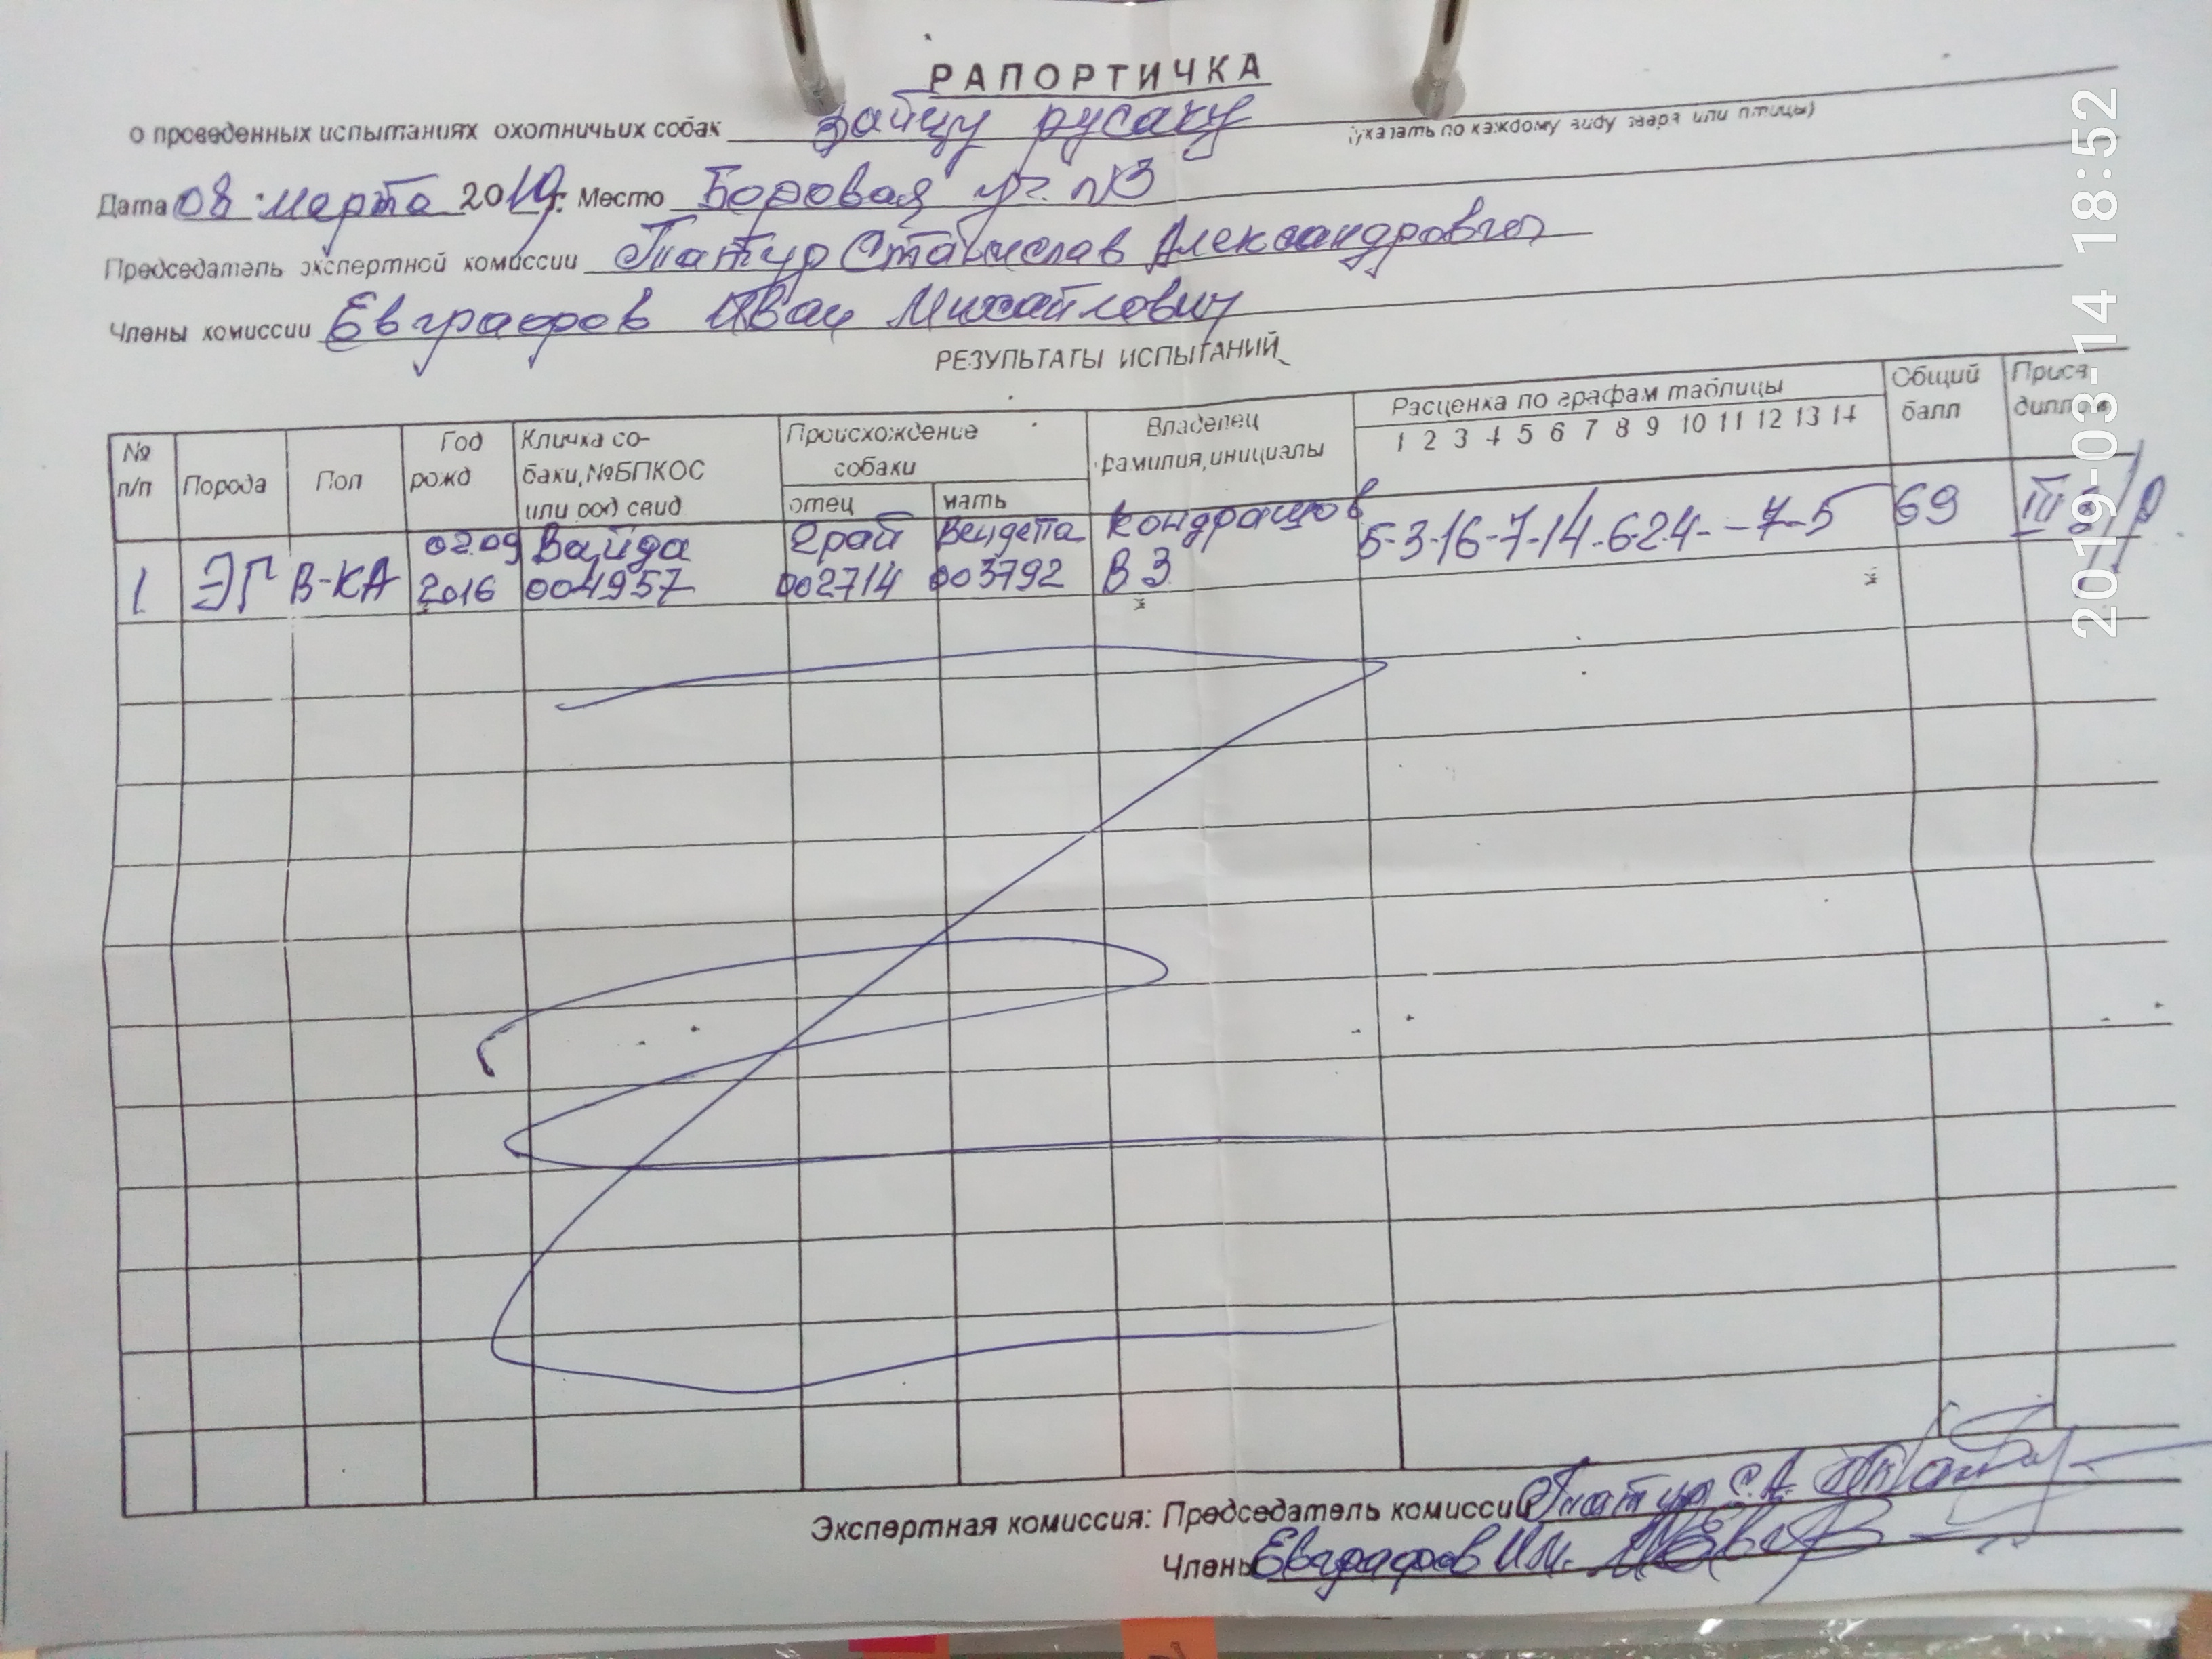 РАПОРТИЧКА
о проведенных испытаниях охотничьих собак зайцу русаку (указать по каждому виду зверя или птицы)
Дата 08 марта 2019 г. Место Боровая уч. №3
Председатель экспертной комиссии Татур Станислав Александрович
Члены комиссии Евграфов Иван Михайлович
РЕЗУЛЬТАТЫ ИСПЫТАНИЙ
№ п/п Порода Пол Год рожд Кличка собаки, №БПКОС или род свид Происхождение собаки отец мать Владелец фамилия, инициалы Расценка по графам таблицы Общий балл Присв. диплом
1 2 3 4 5 6 7 8 9 10 11 12 13 14
1 ЭГ В-КА 02.09 2016 Вайда 004957 Грай 002714 Вендетта 003792 Кондрашов В З 5-3-16-7-14-6-2-4- -7-5 69 III
Экспертная комиссия: Председатель комиссии Татур С.А.
Члены Евграфов И.М.
2019-03-14 18:52